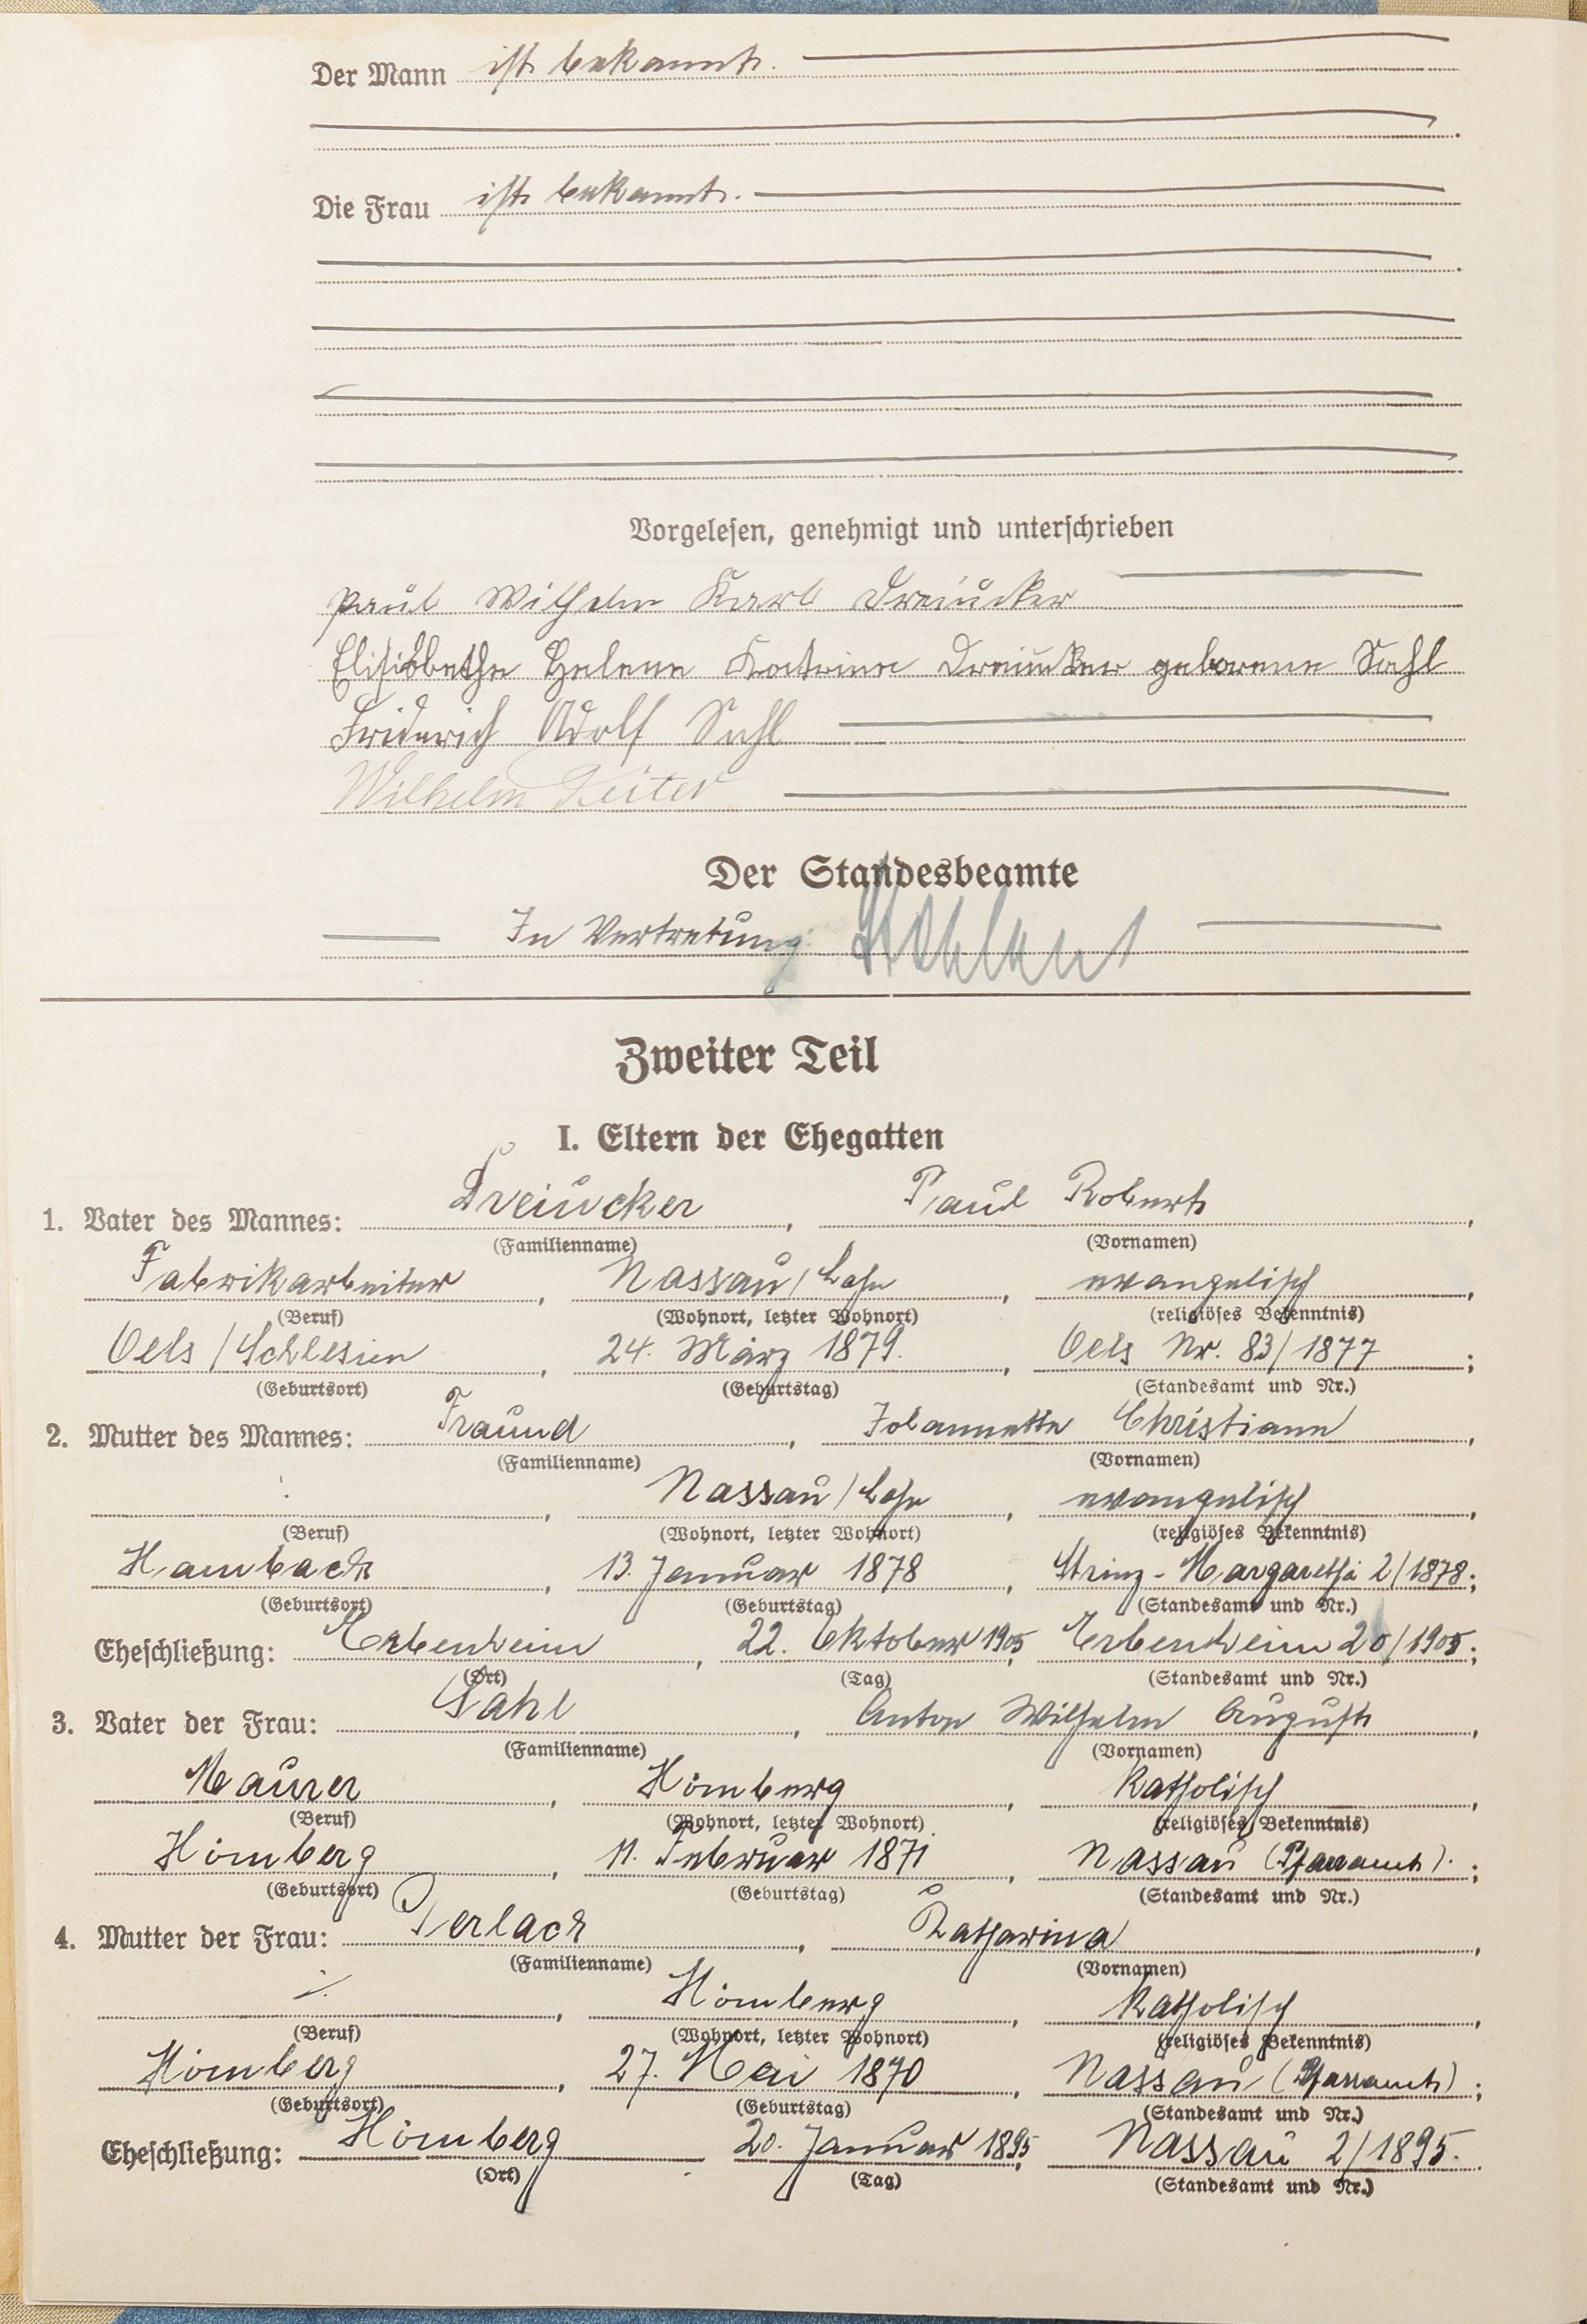 Der Mann ist bekannt.
Die Frau ist bekannt.
Vorgelesen, genehmigt und unterschrieben
Paul Wilhelm Karl Dreiucker
Elisabethe Helene Katrine Dreiucker geborene Sahl
Friderich Adolf Sahl
Wilhelm Reiter
Der Standesbeamte
In Vertretung
Zweiter Teil
I. Eltern der Ehegatten
1. Vater des Mannes: Dreiucker, Paul Robert,
(Familienname) (Vornamen)
Fabrikarbeiter, Nassau/Lahn, evangelisch,
(Beruf) (Wohnort, letzter Wohnort) (religiöses Bekenntnis)
Oels/Schlesien, 24. März 1879., Oels Nr. 83/1877;
(Geburtsort) (Geburtstag) (Standesamt und Nr.)
2. Mutter des Mannes: Fraund, Johannette Christiane,
(Familienname) (Vornamen)
, Nassau/Lahn, evangelisch,
(Beruf) (Wohnort, letzter Wohnort) (religiöses Bekenntnis)
Hambach, 13. Januar 1878, Strinz-Margarethä 2/1878;
(Geburtsort) (Geburtstag) (Standesamt und Nr.)
Eheschließung: Erbenheim, 22. Oktober 1905, Erbenheim 20/1905;
(Ort) (Tag) (Standesamt und Nr.)
3. Vater der Frau: Sahl, Anton Wilhelm August,
(Familienname) (Vornamen)
Maurer, Hömberg, katholisch,
(Beruf) (Wohnort, letzter Wohnort) (religiöses Bekenntnis)
Hömberg, 11. Februar 1871, Nassau (Pfarramt).;
(Geburtsort) (Geburtstag) (Standesamt und Nr.)
4. Mutter der Frau: Gerlach, Katharina,
(Familienname) (Vornamen)
./., Hömberg, katholisch,
(Beruf) (Wohnort, letzter Wohnort) (religiöses Bekenntnis)
Hömberg, 27. Mai 1870, Nassau (Pfarramt);
(Geburtsort) (Geburtstag) (Standesamt und Nr.)
Eheschließung: Hömberg, 20. Januar 1895, Nassau 2/1895.
(Ort) (Tag) (Standesamt und Nr.)